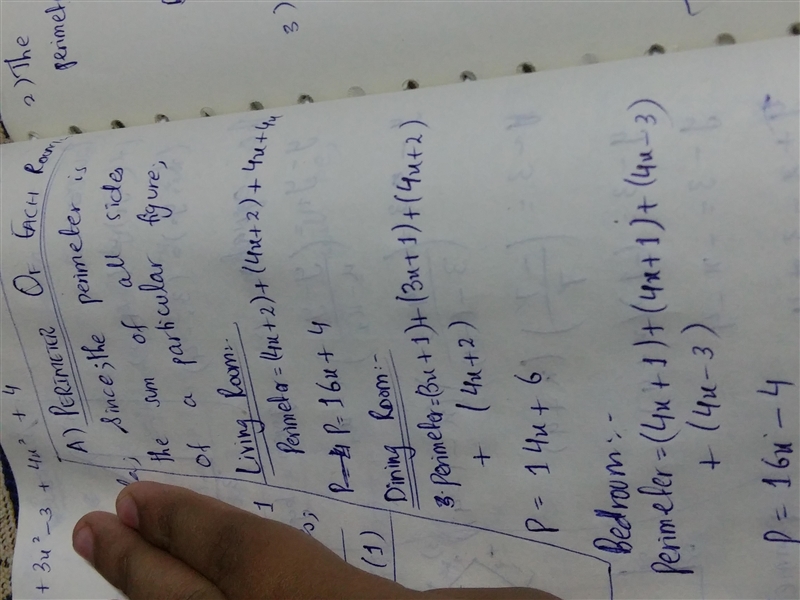 + 3x² - 3 + 4x² + 4
A) PERIMETER OF EACH ROOM:
Since; the perimeter is
the sum of all sides
of a particular figure;
1 Living Room:-
Perimeter = (4x+2) + (4x+2) + 4x + 4x
P = 16x + 4
(1)
Dining Room:-
3. Perimeter = (3x+1) + (3x+1) + (4x+2)
+ (4x+2)
P = 14x + 6
Bedroom:-
Perimeter = (4x+1) + (4x+1) + (4x-3)
+ (4x-3)
P = 16x - 4
2) The
perimet
3)